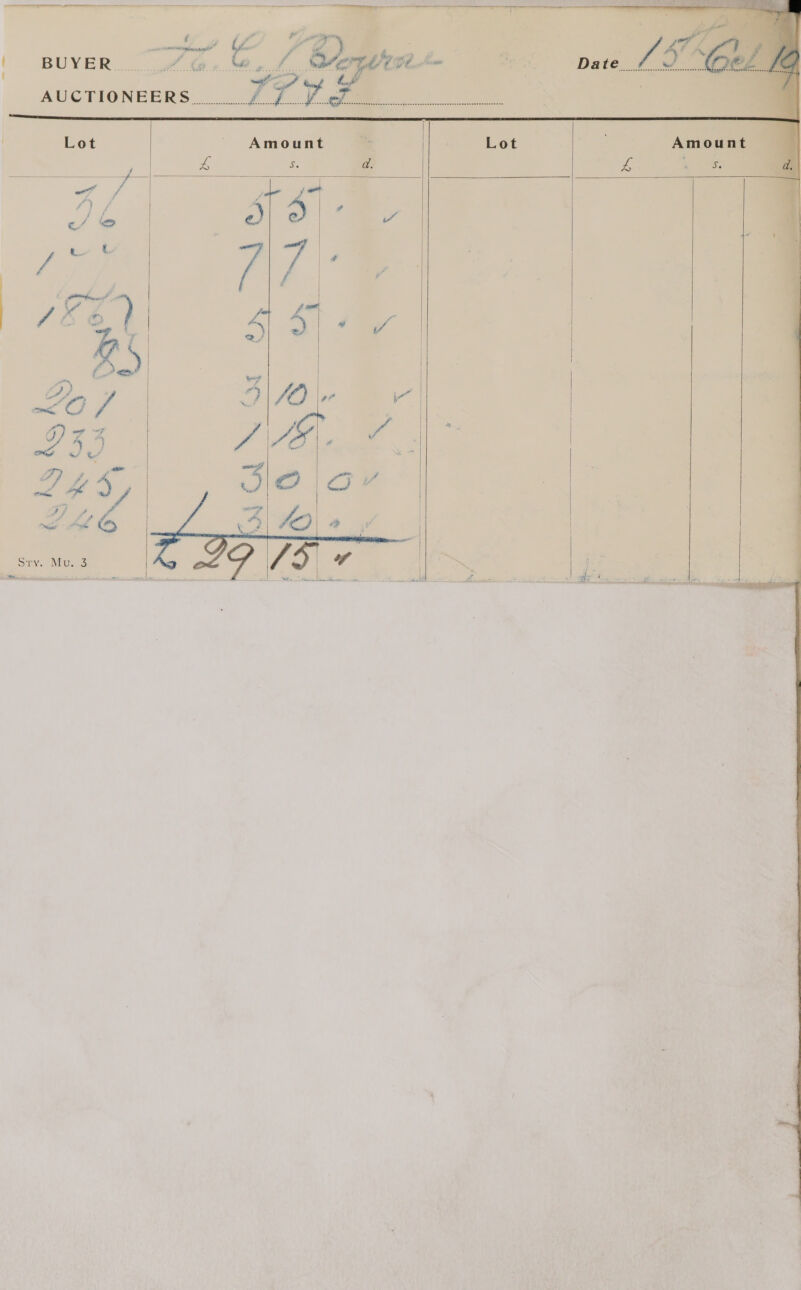 BUYER H. C. Bourne Date 15 Oct 19
AUCTIONEERS
Lot Amount Lot Amount
£ s. d. £ s. d.
36 5 5 -
7 7 -
5 5 -
207 3 10 -
233 1 18 -
245 3 0 0
246 3 10 -
Sty. Mu. 3 £ 29 15 -